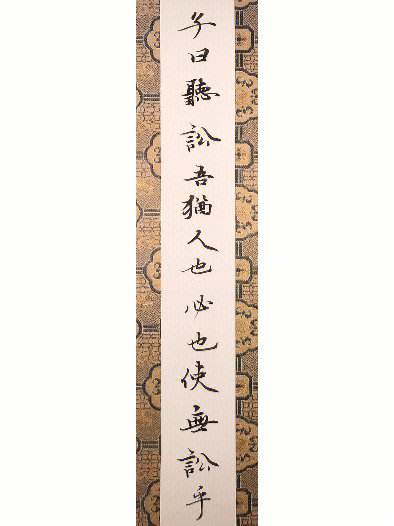 子曰聽訟吾猶人也必也使無訟乎